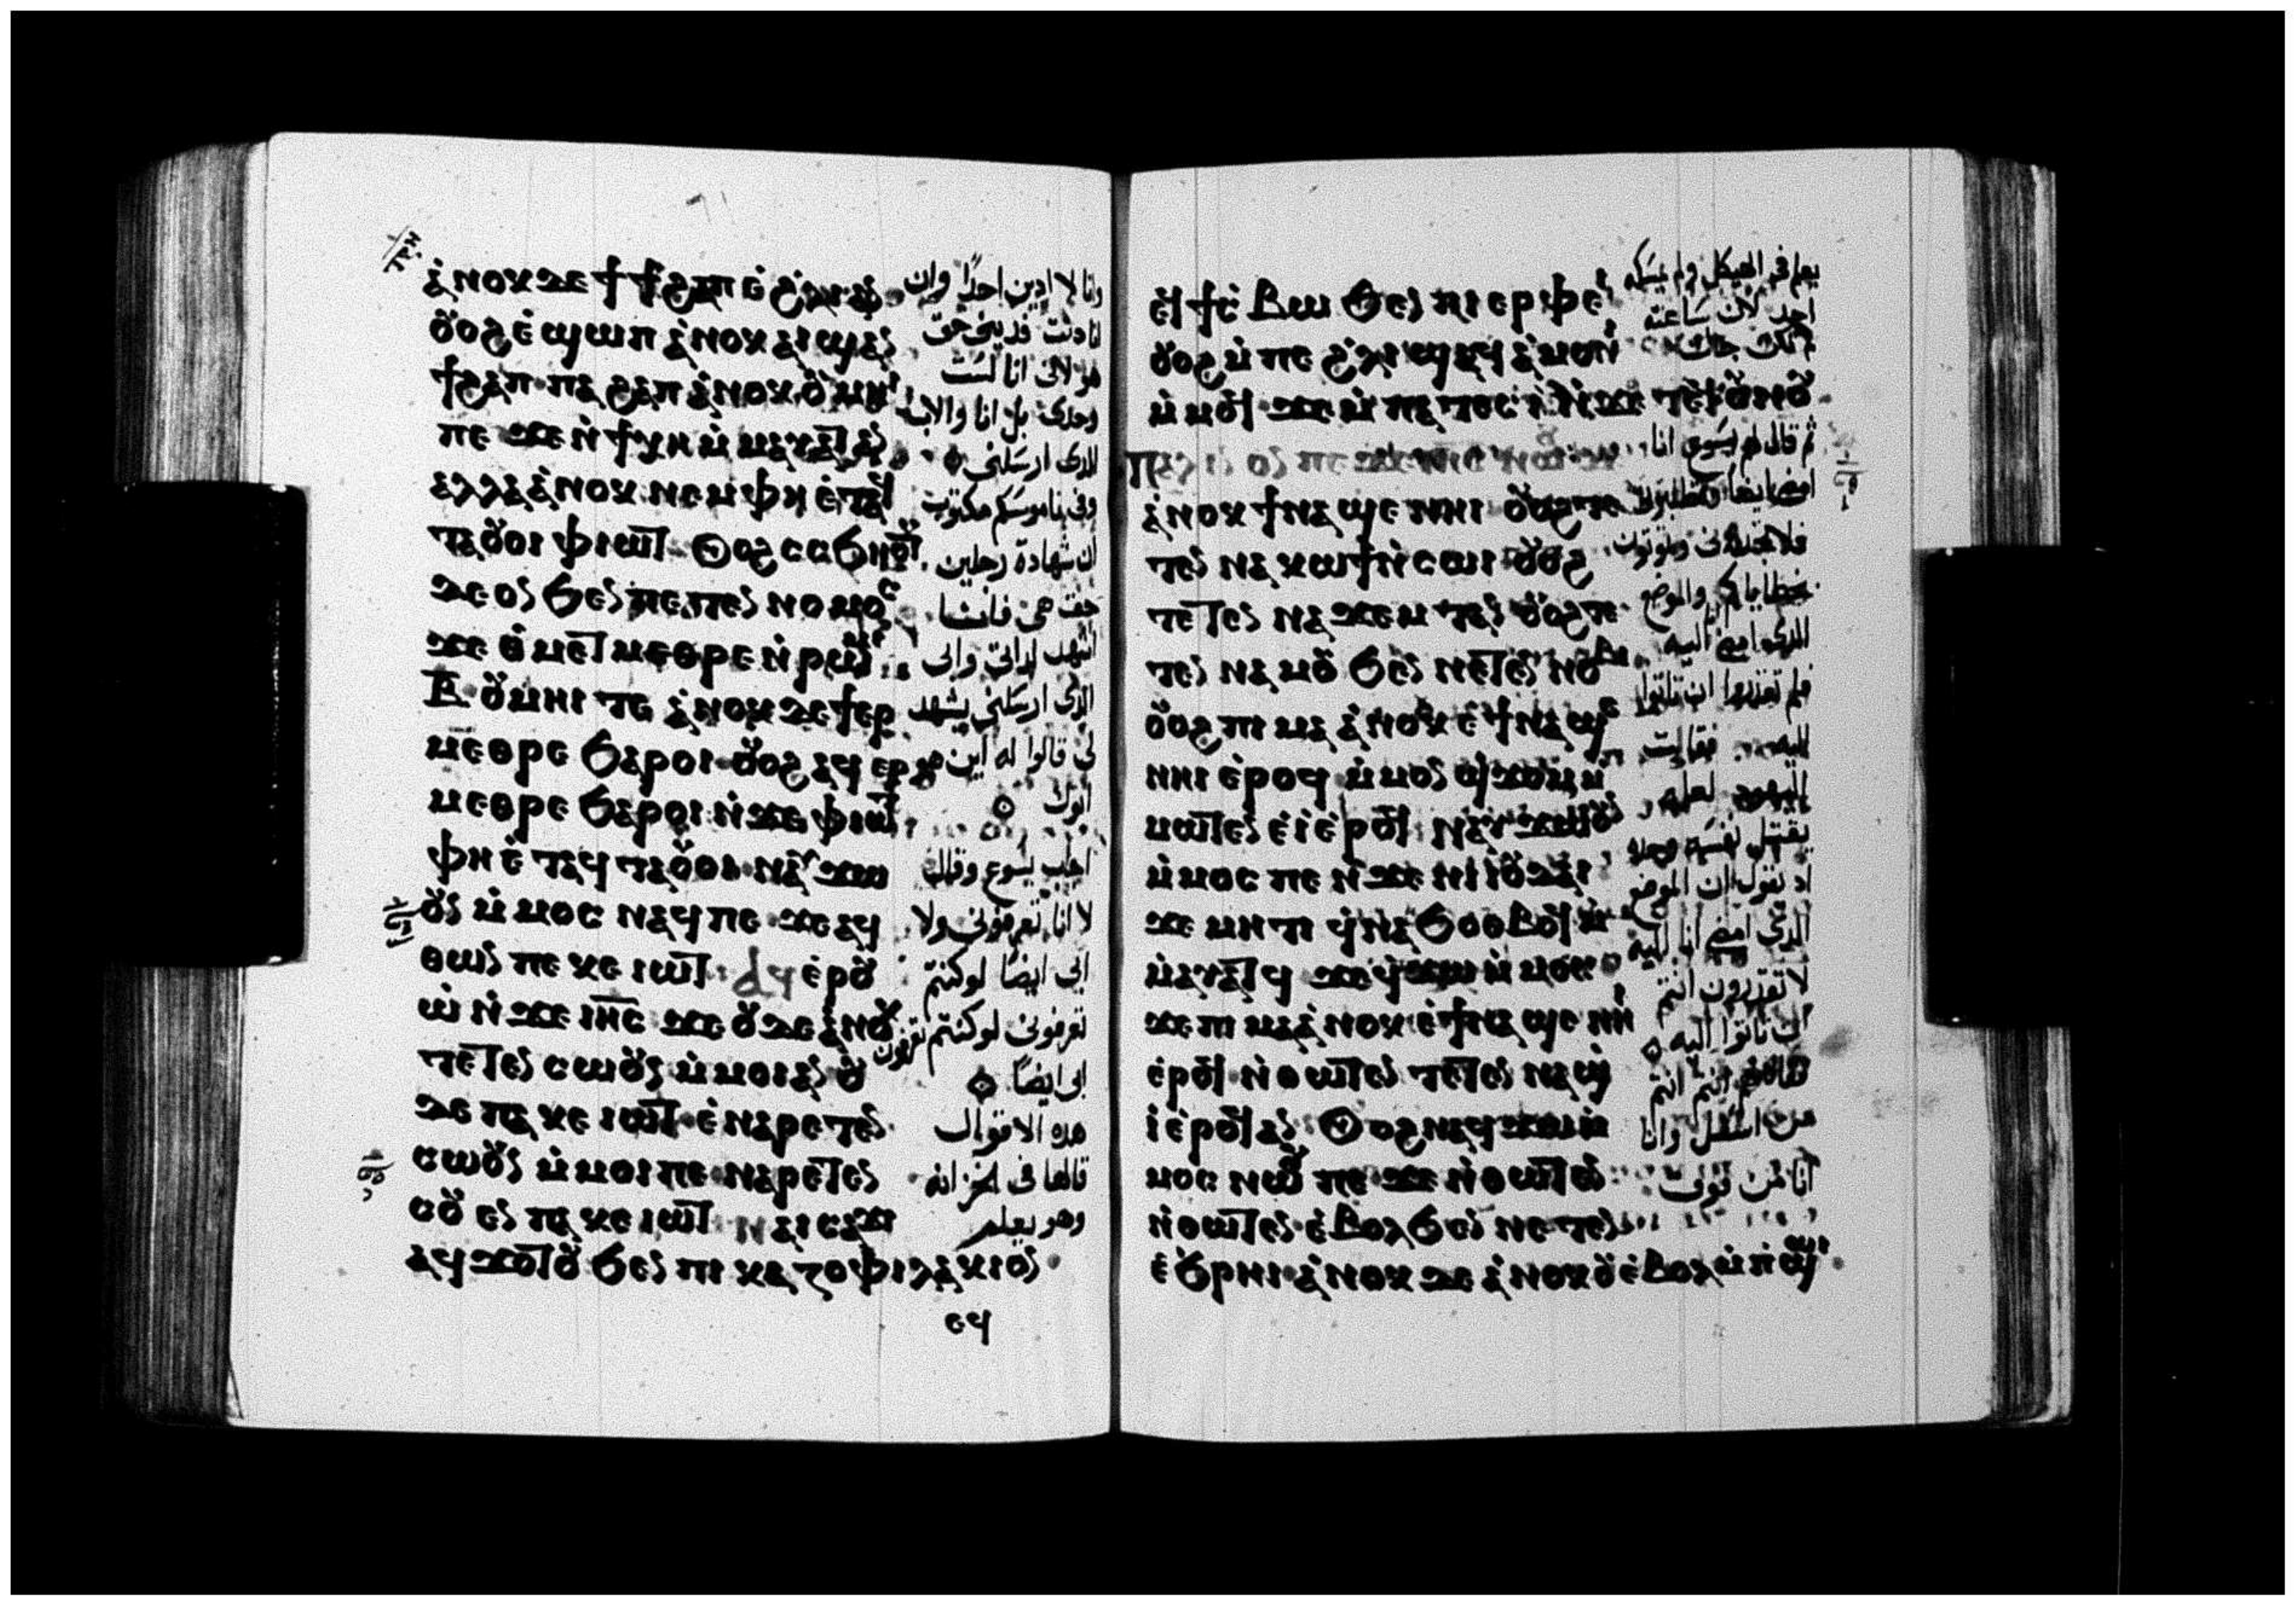 ⲁ̀ⲛⲟⲕ ⲇⲉ ϯϯϩⲁⲡ ⲉ̀ϩ̀ⲗⲓ ⲁⲛ
ⲟⲩⲟϩ ⲉ̀ϣⲱⲡ ⲁ̀ⲛⲟⲕ ⲁⲓϣⲁⲛ
ϯϩⲁⲡ ⲡⲁϩⲁⲡ ⲁ̀ⲛⲟⲕ ⲟⲩⲙⲏⲓ
ⲡⲉ ϫⲉ ⲛ̀ϯⲭⲏ ⲙ̀ⲙⲁⲩⲁⲧ ⲁⲛ
ⲁⲗⲗⲁ ⲁ̀ⲛⲟⲕ ⲛⲉⲙ ⲫⲏ ⲉ̀ⲧⲁϥ
ⲧⲁⲟⲩⲟⲓ ⲫⲓⲱⲧ ⲟⲩⲟϩ ⲥⲥϧⲏⲟⲩⲧ
ⲇⲉ ⲟⲛ ϧⲉⲛ ⲡⲉⲧⲉⲛ ⲛⲟⲙⲟⲥ
ϫⲉ ⲑ̀ⲙⲉⲧⲙⲉⲑⲣⲉ ⲛ̀ⲣⲱⲙⲓ
ⲃ̅ ⲟⲩⲙⲏⲓ ⲧⲉ ⲁ̀ⲛⲟⲕ ⲇⲉ ϯⲉⲣ
ⲙⲉⲑⲣⲉ ϧⲁⲣⲟⲓ ⲟⲩⲟϩ ⲁϥⲉⲣ
ⲙⲉⲑⲣⲉ ϧⲁⲣⲟⲓ ⲛ̀ϫⲉ ⲫⲓⲱⲧ
ⲫⲏ ⲉ̀ⲧⲁϥⲧⲁⲟⲩⲟⲓ ⲛⲁⲩϫⲱ
ⲟⲩⲛ ⲙ̀ⲙⲟⲥ ⲛⲁϥ ⲡⲉ ϫⲉ ⲁϥ
ⲑⲱⲛ ⲡⲉⲕⲉⲓⲱⲧ ⲁϥⲉ̀ⲣⲟⲩ
ⲱ̀ ⲛ̀ϫⲉ ⲓⲏ̅ⲥ ϫⲉ ⲟⲩⲇⲉ ⲁ̀ⲛⲟⲕ
ⲧⲉⲧⲉⲛ ⲥⲱⲟⲩⲛ ⲙ̀ⲙⲟⲓ ⲁⲛ ⲟⲩ
ⲇⲉ ⲡⲁⲕⲉⲓⲱⲧ ⲉ̀ⲛⲁⲣⲉⲧⲉⲛ
ⲥⲱⲟⲩⲛ ⲙ̀ⲙⲟⲓ ⲡⲉ ⲛⲁⲣⲉⲧⲉⲛ
ⲥⲟⲩⲉⲛ ⲡⲁⲕⲉⲓⲱⲧ ⲛⲁⲓⲥⲁϫⲓ
ⲁϥϫⲟⲧⲟⲩ ϧⲉⲛ ⲡⲓⲕⲁⲍⲟⲫⲓⲗⲁⲕⲓⲟⲛ
ⲉϥ
وانا لا ادين احدًا وان
انا دنت فديني حق
هو لاني انا لست
وحدي بل انا والاب
الذي ارسلني
وفي ناموسكم مكتوب
ان شهادة رجلين
حق هي فانا
اشهد لذاتي وابي
الذي ارسلني يشهد
لي قالوا له اين هو
ابوك
اجاب يسوع وقال
لا انا تعرفوني ولا
ابي ايضًا لو كنتم
تعرفوني لو كنتم تعرفون
ابي ايضًا
هذه الاقوال
قالها في الخزانه
وهو يعلم
ⲉϥϯⲥ̀ⲃⲱ ϧⲉⲛ ⲡⲓⲉⲣⲫⲉⲓ
ⲟⲩⲟϩ ⲙ̀ⲡⲉ ϩ̀ⲗⲓ ϣ̀ⲁⲙⲟⲛⲓ
ⲙ̀ⲙⲟϥ ϫⲉ ⲙ̀ⲡⲁⲧⲉⲥⲓ̀ ⲛ̀ϫⲉ ⲧⲉϥⲟⲩⲛⲟⲩ
ⲁ̀ⲛⲟⲕ ϯⲛⲁϣⲉ ⲛⲏⲓ ⲟⲩⲟϩ ⲧⲉ
ⲧⲉⲛ ⲛⲁⲕⲱϯ ⲛ̀ⲥⲱⲓ ⲟⲩⲟϩ
ⲧⲉⲧⲉⲛ ⲛⲁϫⲉⲙⲧ ⲁⲛ ⲟⲩⲟϩ ⲧⲉ
ⲧⲉⲛ ⲛⲁⲙⲟⲩ ϧⲉⲛ ⲛⲉⲧⲉⲛ ⲛⲟⲃⲓ
ⲟⲩⲟϩ ⲡⲓⲙⲁ ⲁ̀ⲛⲟⲕ ⲉ̀ϯⲛⲁϣⲉ
ⲛⲏⲓ ⲉ̀ⲣⲟϥ ⲙ̀ⲙⲟⲛ ϣϫⲟⲙ ⲙ̀
ⲙⲱⲧⲉⲛ ⲉ̀ⲓ̀ ⲉ̀ⲣⲟϥ ⲛⲁⲩϫⲱ ⲟⲩⲛ
ⲙ̀ⲙⲟⲥ ⲡⲉ ⲛ̀ϫⲉ ⲛⲓⲓⲟⲩⲇⲁⲓ
ϫⲉ ⲙⲏⲧⲓ ϥ̀ⲛⲁϧⲟⲑⲃⲉϥ
ⲙ̀ⲙⲁⲩⲁⲧϥ ϫⲉ ϥ̀ϫⲱ ⲙ̀ⲙⲟⲥ
ϫⲉ ⲡⲓⲙⲁ ⲁ̀ⲛⲟⲕ ⲉ̀ϯⲛⲁϣⲉ ⲛⲏⲓ
ⲉ̀ⲣⲟϥ ⲛ̀ⲑⲱⲧⲉⲛ ⲧⲉⲧⲉⲛ ⲛⲁϣ
ⲓ̀ ⲉ̀ⲣⲟϥ ⲁⲛ ⲟⲩⲟϩ ⲛⲁϥϫⲱ ⲙ̀
ⲙⲟⲥ ⲛⲱⲟⲩ ⲡⲉ ϫⲉ ⲛ̀ⲑⲱⲧⲉⲛ
ⲛ̀ⲑⲱⲧⲉⲛ ⲉ̀ⲃⲟⲗ ϧⲉⲛ ⲛⲉⲧⲉⲛ
ⲉϧⲣⲏⲓ ⲁ̀ⲛⲟⲕ ⲇⲉ ⲁ̀ⲛⲟⲕ ⲟⲩⲉ̀ⲃⲟⲗ ⲙ̀ⲡϣⲱⲓ
يعلم في الهيكل ولم يمسكه
احد لان ساعته
لم تكن جات
ثم قال لهم يسوع انا
امضي ايضًا وتطلبوني
فلا تجدوني وتموتون
بخطاياكم والموضع
الذي امضي انا اليه
فلم تقدروا ان تاتوا
اليه فقالت
اليهود لعله
يقتل نفسه وحده
اذ يقول ان الموضع
الذي امضي انا اليه
لا تقدرون انتم
ان تاتوا اليه
فقال لهم انتم انتم
من اسفل وانا
انا من فوق